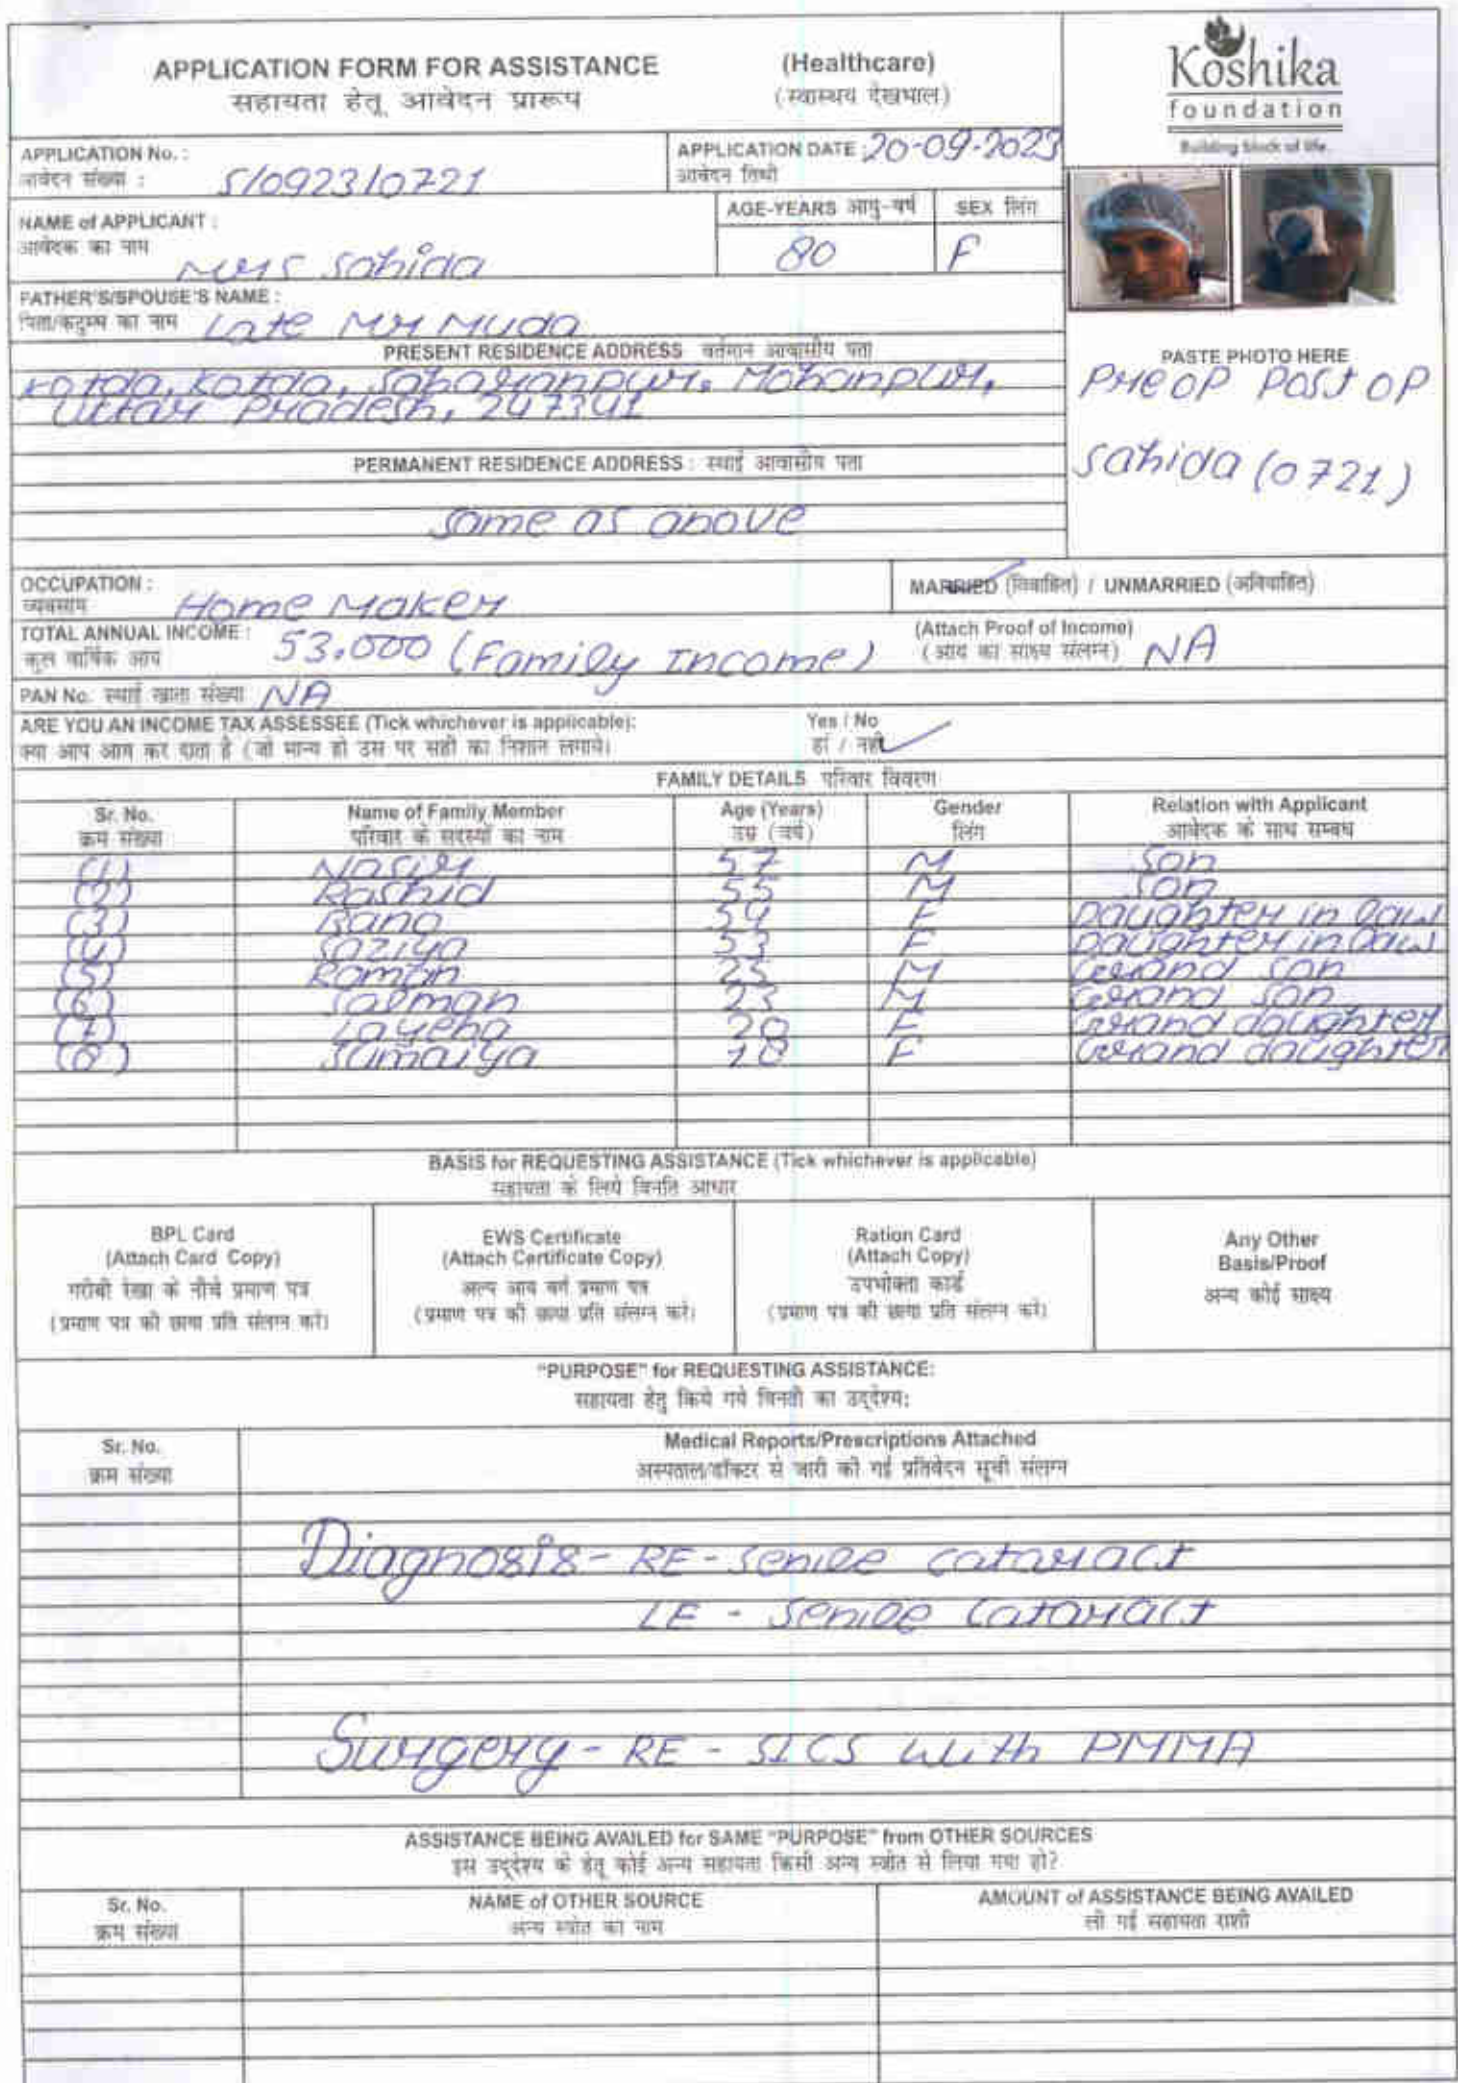 APPLICATION FORM FOR ASSISTANCE (Healthcare)
सहायता हेतू आवेदन प्रारूप (स्वास्थय देखभाल)
Koshika
foundation
Building block of life.
APPLICATION No. : S/0923/0721
आवेदन संख्या :
APPLICATION DATE : 20-09-2023
आवेदन तिथी
NAME of APPLICANT : Mrs Sahida
आवेदक का नाम
AGE-YEARS आयु-वर्ष 80
SEX लिंग F
FATHER'S/SPOUSE'S NAME : Late Mr Muda
पिता/कटुम्ब का नाम
PRESENT RESIDENCE ADDRESS वर्तमान आवासीय पता
Kotda, Kotda, Saharanpur, Mohanpur,
Uttar Pradesh, 247341
PASTE PHOTO HERE
Preop Post op
Sahida (0721)
PERMANENT RESIDENCE ADDRESS : स्थाई आवासीय पता
Same as above
OCCUPATION : Home Maker
व्यवसाय
MARRIED (विवाहित) / UNMARRIED (अविवाहित)
TOTAL ANNUAL INCOME : 53,000 (Family Income)
कुल वार्षिक आय
(Attach Proof of Income) NA
(आय का साक्ष्य संलग्न)
PAN No. स्थाई खाता संख्या NA
ARE YOU AN INCOME TAX ASSESSEE (Tick whichever is applicable): Yes / No
क्या आप आय कर दाता है (जो मान्य हो उस पर सही का निशान लगाये। हां / नही
FAMILY DETAILS परिवार विवरण
Sr. No. Name of Family Member Age (Years) Gender Relation with Applicant
क्रम संख्या परिवार के सदस्यों का नाम उम्र (वर्ष) लिंग आवेदक के साथ सम्बध
(1) Nasir 57 M Son
(2) Rashid 55 M Son
(3) Bano 54 F Daughter in law
(4) Saziya 53 F Daughter in law
(5) Roman 25 M Grand son
(6) Salman 23 M Grand son
(7) Layeba 20 F Grand daughter
(8) Sumaiya 18 F Grand daughter
BASIS for REQUESTING ASSISTANCE (Tick whichever is applicable)
सहायता के लिये विनति आधार
BPL Card
(Attach Card Copy)
गरीबी रेखा के नीचे प्रमाण पत्र
(प्रमाण पत्र की छाया प्रति संलग्न करें।
EWS Certificate
(Attach Certificate Copy)
अल्प आय वर्ग प्रमाण पत्र
(प्रमाण पत्र की छाया प्रति संलग्न करें।
Ration Card
(Attach Copy)
उपभोक्ता कार्ड
(प्रमाण पत्र की छाया प्रति संलग्न करें।
Any Other
Basis/Proof
अन्य कोई साक्ष्य
"PURPOSE" for REQUESTING ASSISTANCE:
सहायता हेतु किये गये विनती का उद्देश्य:
Sr. No. Medical Reports/Prescriptions Attached
क्रम संख्या अस्पताल/डॉक्टर से जारी की गई प्रतिवेदन सूची संलग्न
Diagnosis - RE - Senile cataract
LE - Senile Cataract
Surgery - RE - SICS with PMMA
ASSISTANCE BEING AVAILED for SAME "PURPOSE" from OTHER SOURCES
इस उद्देश्य के हेतू कोई अन्य सहायता किसी अन्य स्त्रोत से लिया गया हो?
Sr. No. NAME of OTHER SOURCE AMOUNT of ASSISTANCE BEING AVAILED
क्रम संख्या अन्य स्त्रोत का नाम ली गई सहायता राशी